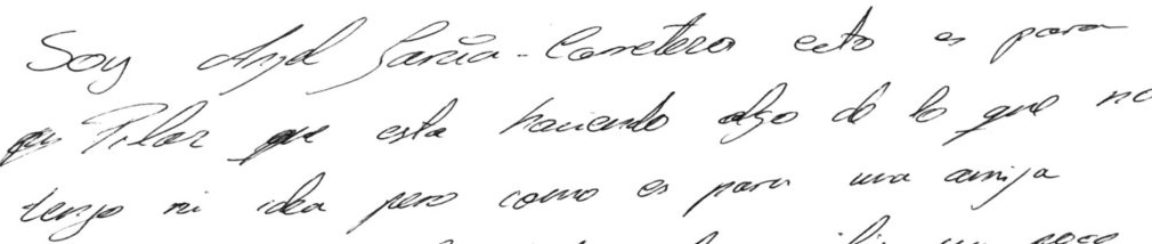 Soy Angel García-Carretero esto es para
Pilar que esta haciendo algo de lo que no
tengo ni idea pero como es para una amiga
un poco